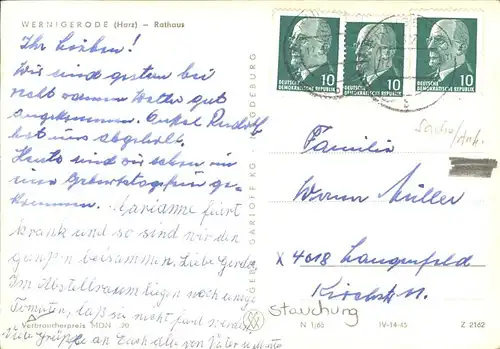 WERNIGERODE (Harz) – Rathaus
Ihr Lieben!
Wir sind gestern bei
recht warmem Wetter gut
angekommen. Onkel Rudolf
hat uns abgeholt.
Heute sind wir schon
kommen. Marianne feiert
krank und so sind wir den
ganzen beisammen. Liebe Gerda
Im Abstellraum liegen noch einige
Tomaten, laß sie nicht faul werden
Viele Grüße an Euch alle von Vater u. Mutti
Verbraucherpreis MDN -,20
GEBR. GARLOFF KG MAGDEBURG
10
DEUTSCHE
DEMOKRATISCHE REPUBLIK
10
DEUTSCHE
DEMOKRATISCHE REPUBLIK
10
DEUTSCHE
DEMOKRATISCHE REPUBLIK
Familie
Müller
X 4018 Langenfeld
Kirchstr. 11.
Stauchung
N 1/60 IV-14-45 Z 2162